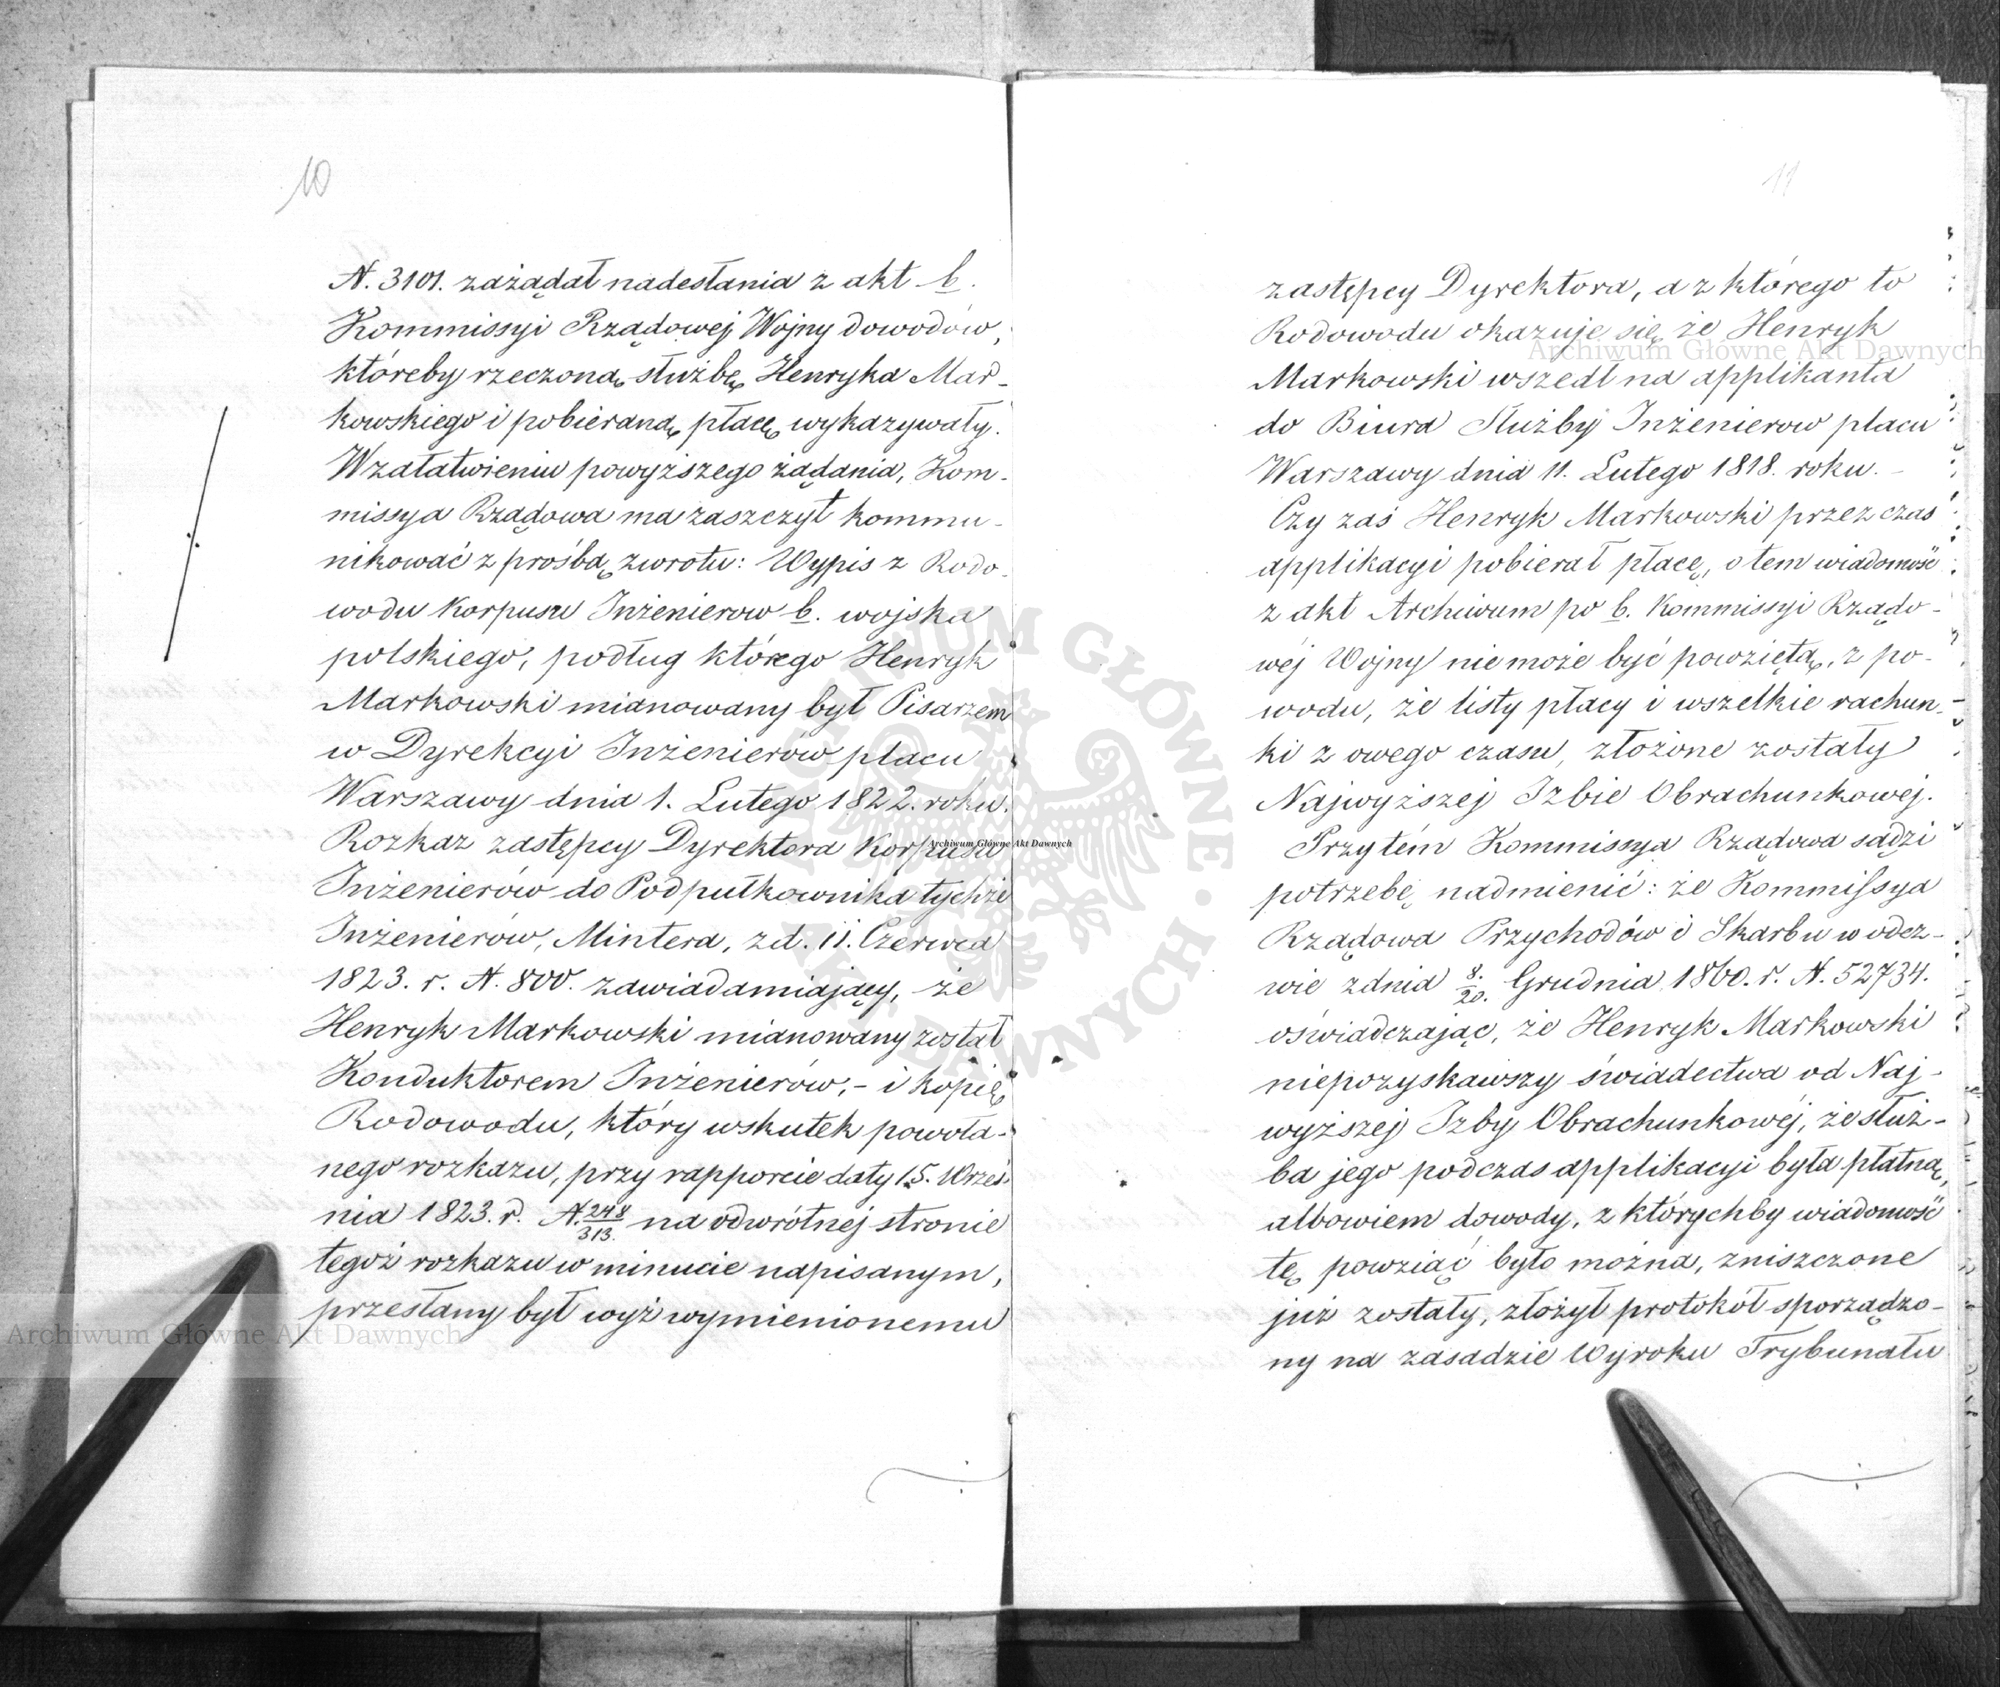 10
N. 3101. zażądał nadesłania z akt b.
Kommissyi Rządowej Wojny dowodów,
któreby rzeczoną służbę Henryka Mar-
kowskiego i pobieraną płacę wykazywały.
W załatwieniu powyższego żądania, Kom-
missya Rządowa ma zaszczyt kommu-
nikować z prośbą zwrotu: Wypis z Rodo-
wodu Korpusu Inżenierow b. wojska
polskiego, podług którego Henryk
Markowski mianowany był Pisarzem
w Dyrekcyi Inżenierów placu
Warszawy dnia 1. Lutego 1822. roku.
Rozkaz zastępcy Dyrektora Korpusu
Inżenierów do Podpułkownika tychże
Inżenierów, Mintera, z d. 11. Czerwca
1823. r. N. 800. zawiadamiający, że
Henryk Markowski mianowany został
Konduktorem Inżenierów,- i kopię
Rodowodu, który wskutek powoła-
nego rozkazu, przy rapporcie daty 15. Wrześ-
nia 1823. r. N. 248/313. na odwrótnej stronie
tegoż rozkazu w minucie napisanym,
przesłany był wyż wymienionemu
11
zastępcy Dyrektora, a z którego to
Rodowodu okazuje się, że Henryk
Markowski wszedł na applikanta
do Biura Służby Inżenierow placu
Warszawy dnia 11. Lutego 1818. roku.
Czy zaś Henryk Markowski przez czas
applikacyi pobierał płacę, o tem wiadomość
z akt Archiwum po b. Kommissyi Rządo-
wéj Wojny nie może być powziętą, z po-
wodu, że listy płacy i wszelkie rachun-
ki z owego czasu, złożone zostały
Najwyższej Izbie Obrachunkowej.
Przytém Kommissya Rządowa sądzi
potrzebę nadmienić: że Kommissya
Rządowa Przychodów i Skarbu w odez-
wie z dnia 8./20. Grudnia 1860. r. N. 52734.
oświadczając, że Henryk Markowski
niepozyskawszy świadectwa od Naj-
wyższej Izby Obrachunkowéj, że służ-
ba jego podczas applikacyi była płatną,
albowiem dowody, z którychby wiadomość
tę powziąć było można, zniszczone
już zostały, złożył protokół sporządzo-
ny na zasadzie Wyroku Trybunału
Archiwum Główne Akt Dawnych
Archiwum Główne Akt Dawnych
Archiwum Główne Akt Dawnych
ARCHIWUM GŁÓWNE · AKT DAWNYCH ·